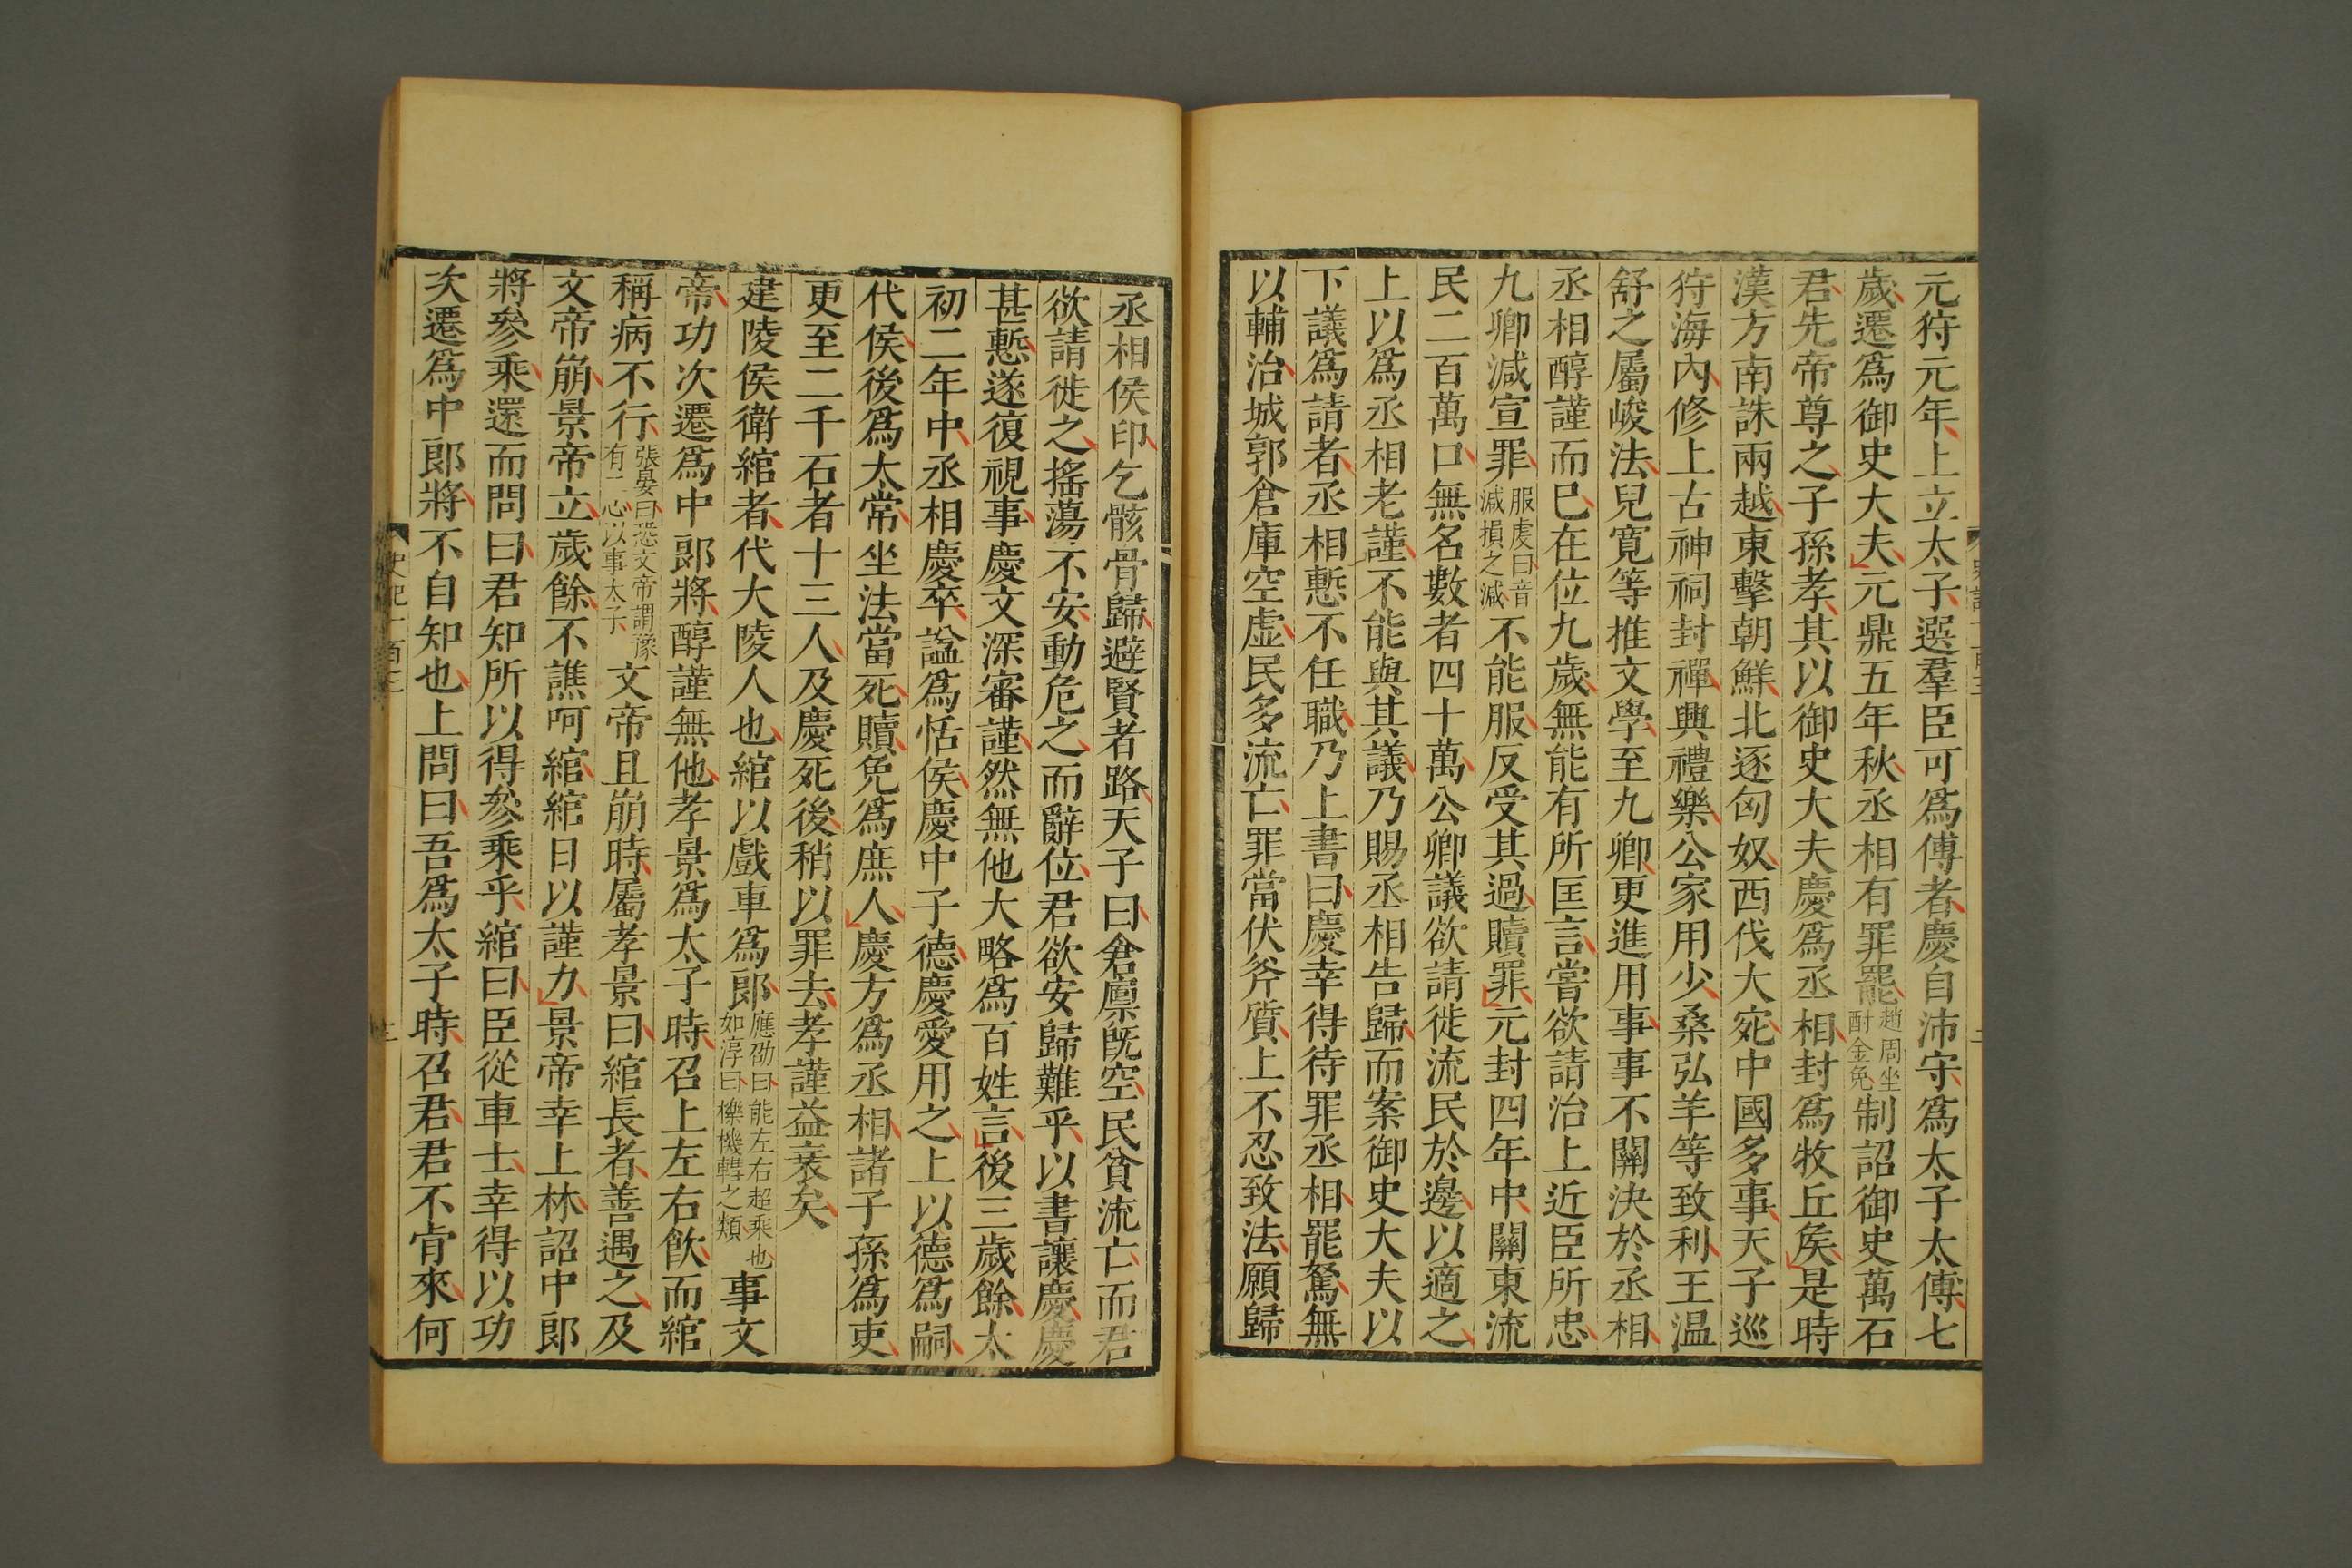 元狩元年上立太子選羣臣可爲傅者慶自沛守爲太子太傅七
歲遷爲御史大夫元鼎五年秋丞相有罪罷趙周坐酎金免制詔御史萬石
君先帝尊之子孫孝其以御史大夫慶爲丞相封爲牧丘矦是時
漢方南誅兩越東擊朝鮮北逐匈奴西伐大宛中國多事天子巡
狩海內修上古神祠封禪興禮樂公家用少桑弘羊等致利王温
舒之屬峻法兒寬等推文學至九卿更進用事事不關決於丞相
丞相醇謹而已在位九歲無能有所匡言嘗欲請治上近臣所忠
九卿減宣罪服虔曰音減損之減不能服反受其過贖罪元封四年中關東流
民二百萬口無名數者四十萬公卿議欲請徙流民於邊以適之
上以爲丞相老謹不能與其議乃賜丞相告歸而案御史大夫以
下議爲請者丞相慙不任職乃上書曰慶幸得待罪丞相罷駑無
以輔治城郭倉庫空虛民多流亡罪當伏斧質上不忍致法願歸
丞相侯印乞骸骨歸避賢者路天子曰倉廩旣空民貧流亡而君
欲請徙之搖蕩不安動危之而辭位君欲安歸難乎以書讓慶慶
甚慙遂復視事慶文深審謹然無他大略爲百姓言後三歲餘太
初二年中丞相慶卒諡爲恬侯慶中子德慶愛用之上以德爲嗣
代侯後爲太常坐法當死贖免爲庶人慶方爲丞相諸子孫爲吏
更至二千石者十三人及慶死後稍以罪去孝謹益衰矣
建陵侯衛綰者代大陵人也綰以戲車爲郎應劭曰能左右超乘也如淳曰櫟機轊之類事文
帝功次遷爲中郎將醇謹無他孝景爲太子時召上左右飲而綰
稱病不行張晏曰恐文帝謂豫有二心以事太子文帝且崩時屬孝景曰綰長者善遇之及
文帝崩景帝立歲餘不譙呵綰綰日以謹力景帝幸上林詔中郎
將參乘還而問曰君知所以得參乘乎綰曰臣從車士幸得以功
次遷爲中郎將不自知也上問曰吾爲太子時召君君不肯來何
史記一百三